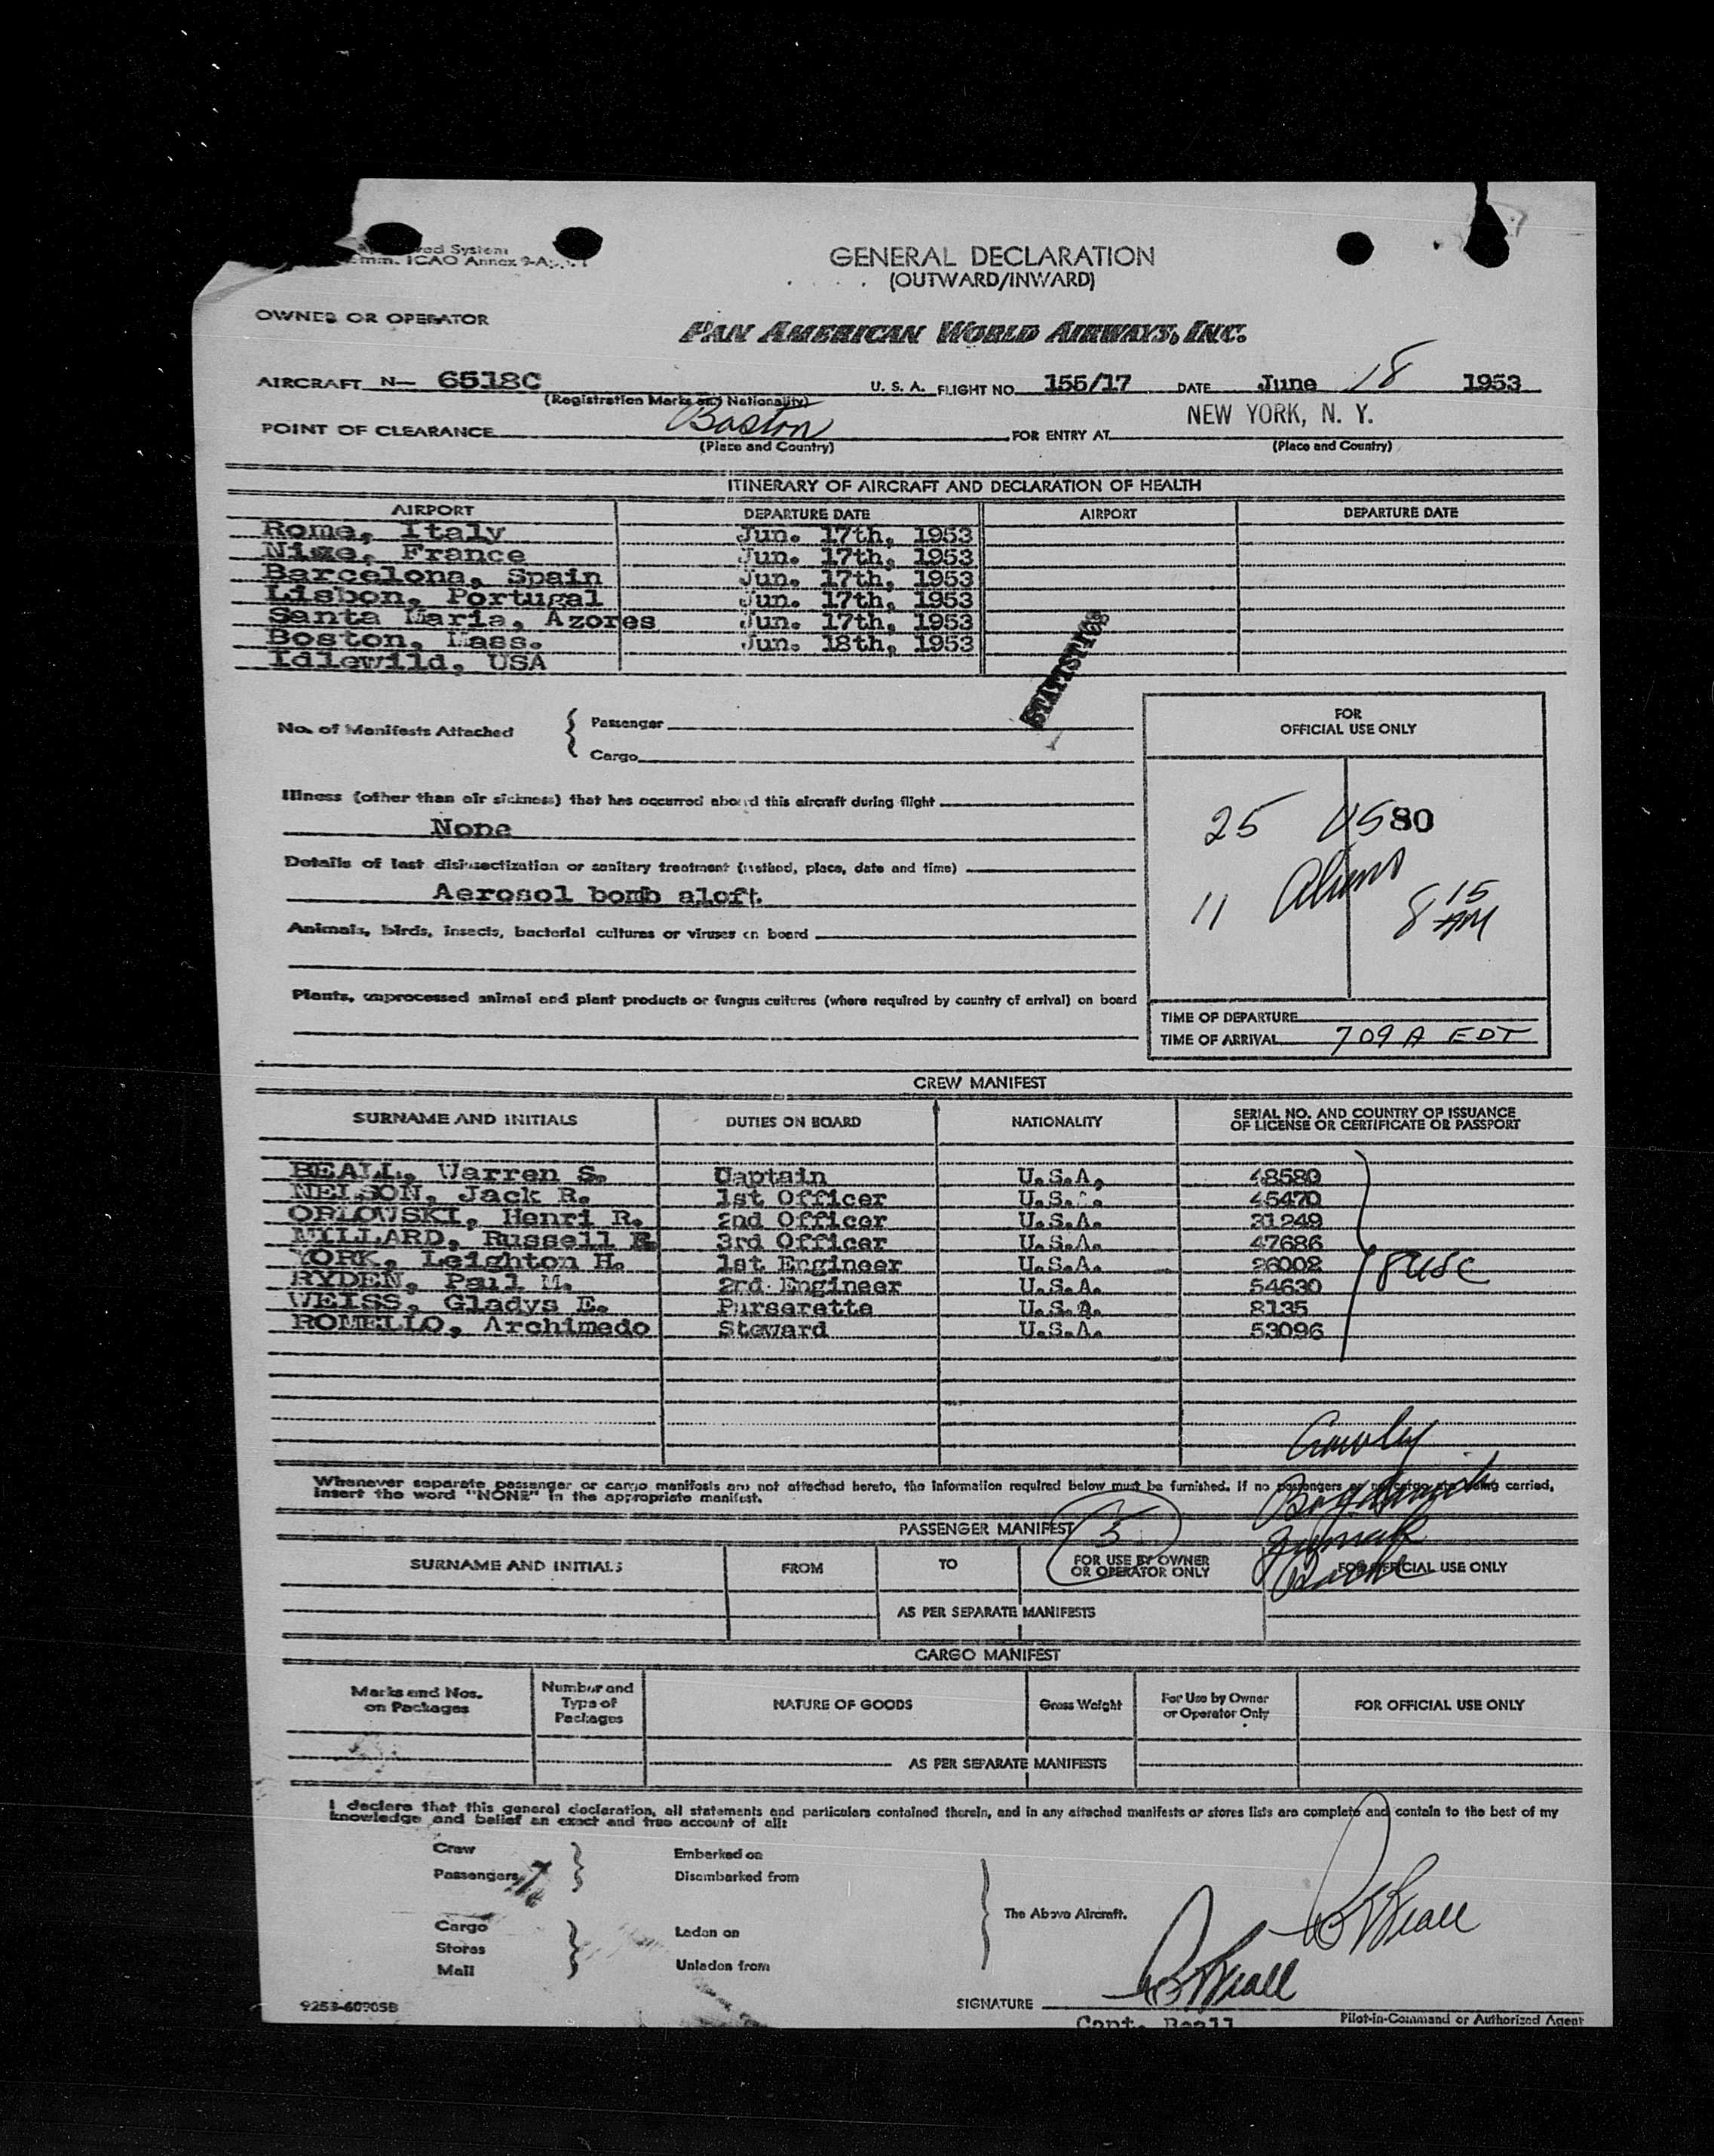 System
ICAO Annex 9-A
GENERAL DECLARATION
(OUTWARD/INWARD)
OWNER OR OPERATOR
PAN AMERICAN WORLD AIRWAYS, INC.
AIRCRAFT N— 6518C U. S. A. FLIGHT NO. 155/17 DATE June 18 1953
(Registration Marks and Nationality)
POINT OF CLEARANCE Boston FOR ENTRY AT NEW YORK, N. Y.
(Place and Country) (Place and Country)
ITINERARY OF AIRCRAFT AND DECLARATION OF HEALTH
AIRPORT DEPARTURE DATE AIRPORT DEPARTURE DATE
Rome, Italy Jun. 17th, 1953
France Jun. 17th, 1953
Barcelona, Spain Jun. 17th, 1953
Lisbon, Portugal Jun. 17th, 1953
Santa Maria, Azores Jun. 17th, 1953
Boston, Mass. Jun. 18th, 1953
Idlewild, USA
STATISTICS
No. of Manifests Attached { Passenger
Cargo
FOR
OFFICIAL USE ONLY
Illness (other than air sickness) that has occurred aboard this aircraft during flight
None
25 US 80
Details of last disinsectization or sanitary treatment (method, place, date and time)
Aerosol bomb aloft.
11 Aliens 8 15 AM
Animals, birds, insects, bacterial cultures or viruses on board
Plants, unprocessed animal and plant products or fungus cultures (where required by country of arrival) on board
TIME OF DEPARTURE
TIME OF ARRIVAL 709 A EDT
CREW MANIFEST
SURNAME AND INITIALS DUTIES ON BOARD NATIONALITY SERIAL NO. AND COUNTRY OF ISSUANCE
OF LICENSE OR CERTIFICATE OR PASSPORT
BEALL, Warren S. Captain U.S.A. 48580
NELSON, Jack R. 1st Officer U.S.A. 45470
ORLOWSKI, Henri R. 2nd Officer U.S.A. 31249
MILLARD, Russell R. 3rd Officer U.S.A. 47686
YORK, Leighton H. 1st Engineer U.S.A. 26002
RYDEN, Paul M. 2nd Engineer U.S.A. 54630
WEISS, Gladys E. Purserette U.S.A. 8135
ROMELLO, Archimedo Steward U.S.A. 53096
8 USC
Crowley
Whenever separate passenger or cargo manifests are not attached hereto, the information required below must be furnished. If no passengers or no cargo are being carried,
insert the word "NONE" in the appropriate manifest.
PASSENGER MANIFEST
SURNAME AND INITIALS FROM TO FOR USE BY OWNER
OR OPERATOR ONLY FOR OFFICIAL USE ONLY
AS PER SEPARATE MANIFESTS
CARGO MANIFEST
Marks and Nos.
on Packages Number and
Type of
Packages NATURE OF GOODS Gross Weight For Use by Owner
or Operator Only FOR OFFICIAL USE ONLY
AS PER SEPARATE MANIFESTS
I declare that this general declaration, all statements and particulars contained therein, and in any attached manifests or stores lists are complete and contain to the best of my
knowledge and belief an exact and true account of all:
Crew Embarked on
Passengers Disembarked from
The Above Aircraft.
Cargo Laden on
Stores
Mail Unladen from
W S Beall
W S Beall
9253-60905B SIGNATURE
Capt. Beall Pilot-in-Command or Authorized Agent